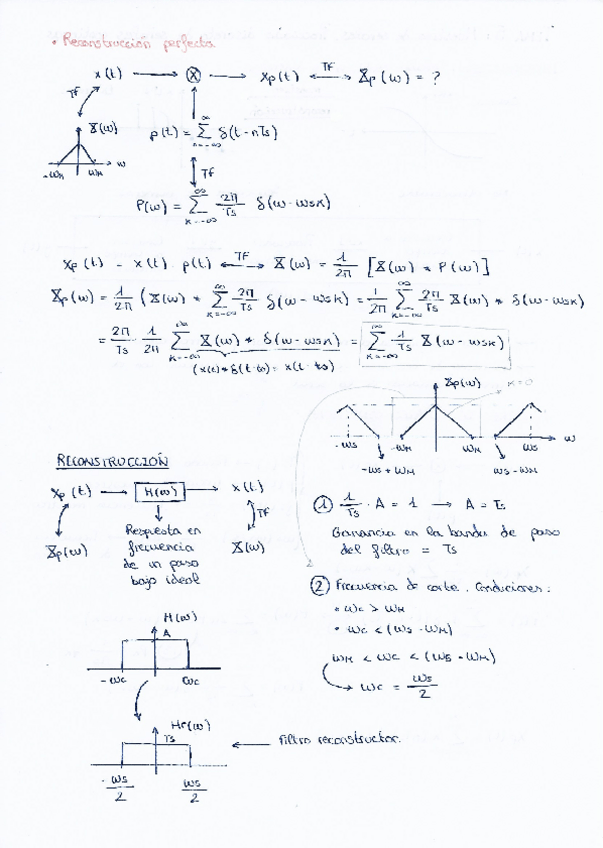 • Reconstrucción perfecta
x(t) → ⊗ → xp(t) ←TF→ Xp(ω) = ?
TF
X(ω)
-ωM ωM ω
p(t) = ∑_{n=-∞}^{∞} δ(t - nTs)
TF
P(ω) = ∑_{k=-∞}^{∞} 2π/Ts δ(ω - ωsk)
xp(t) = x(t) · p(t) ←TF→ X(ω) = 1/2π [X(ω) * P(ω)]
Xp(ω) = 1/2π (X(ω) * ∑_{k=-∞}^{∞} 2π/Ts δ(ω - ωsk) = 1/2π ∑_{k=-∞}^{∞} 2π/Ts X(ω) * δ(ω - ωsk)
= 2π/Ts · 1/2π ∑_{k=-∞}^{∞} X(ω) * δ(ω - ωsk) = ∑_{k=-∞}^{∞} 1/Ts X(ω - ωsk)
(x(t) * δ(t - to) = x(t - to)
Xp(ω) k=0
-ωs -ωM ωM ωs ω
-ωs + ωM ωs - ωM
RECONSTRUCCIÓN
xp(t) → H(ω) → x(t)
TF
Xp(ω) X(ω)
Respuesta en
frecuencia
de un paso
bajo ideal
① 1/Ts · A = 1 → A = Ts
Ganancia en la banda de paso
del filtro = Ts
② Frecuencia de corte. Condiciones:
• ωc > ωM
• ωc < (ωs - ωM)
ωM < ωc < (ωs - ωM)
→ ωc = ωs/2
H(ω)
A
-ωc ωc
Hr(ω)
Ts
← Filtro reconstructor.
-ωs/2 ωs/2